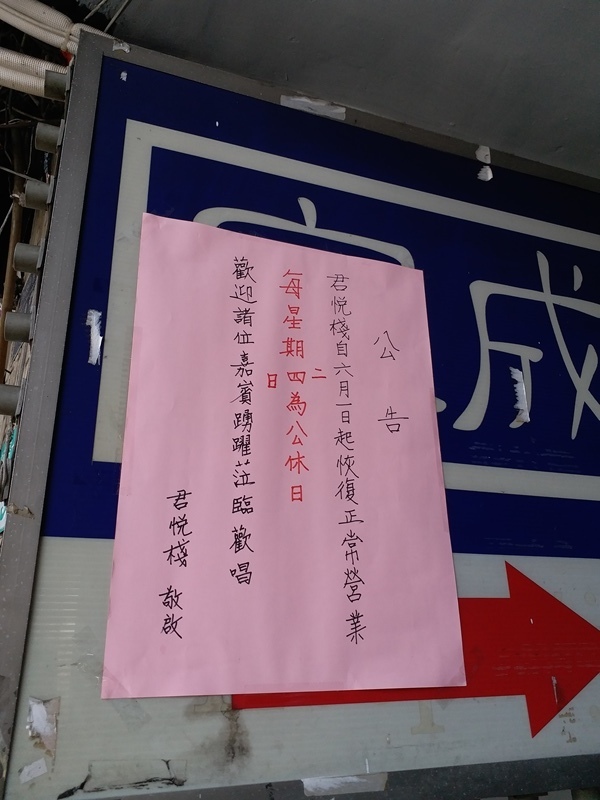 公告
君悅棧自六月一日起恢復正常營業
二
每星期四為公休日
日
歡迎諸位嘉賓踴躍蒞臨歡唱
君悅棧 敬啟
成